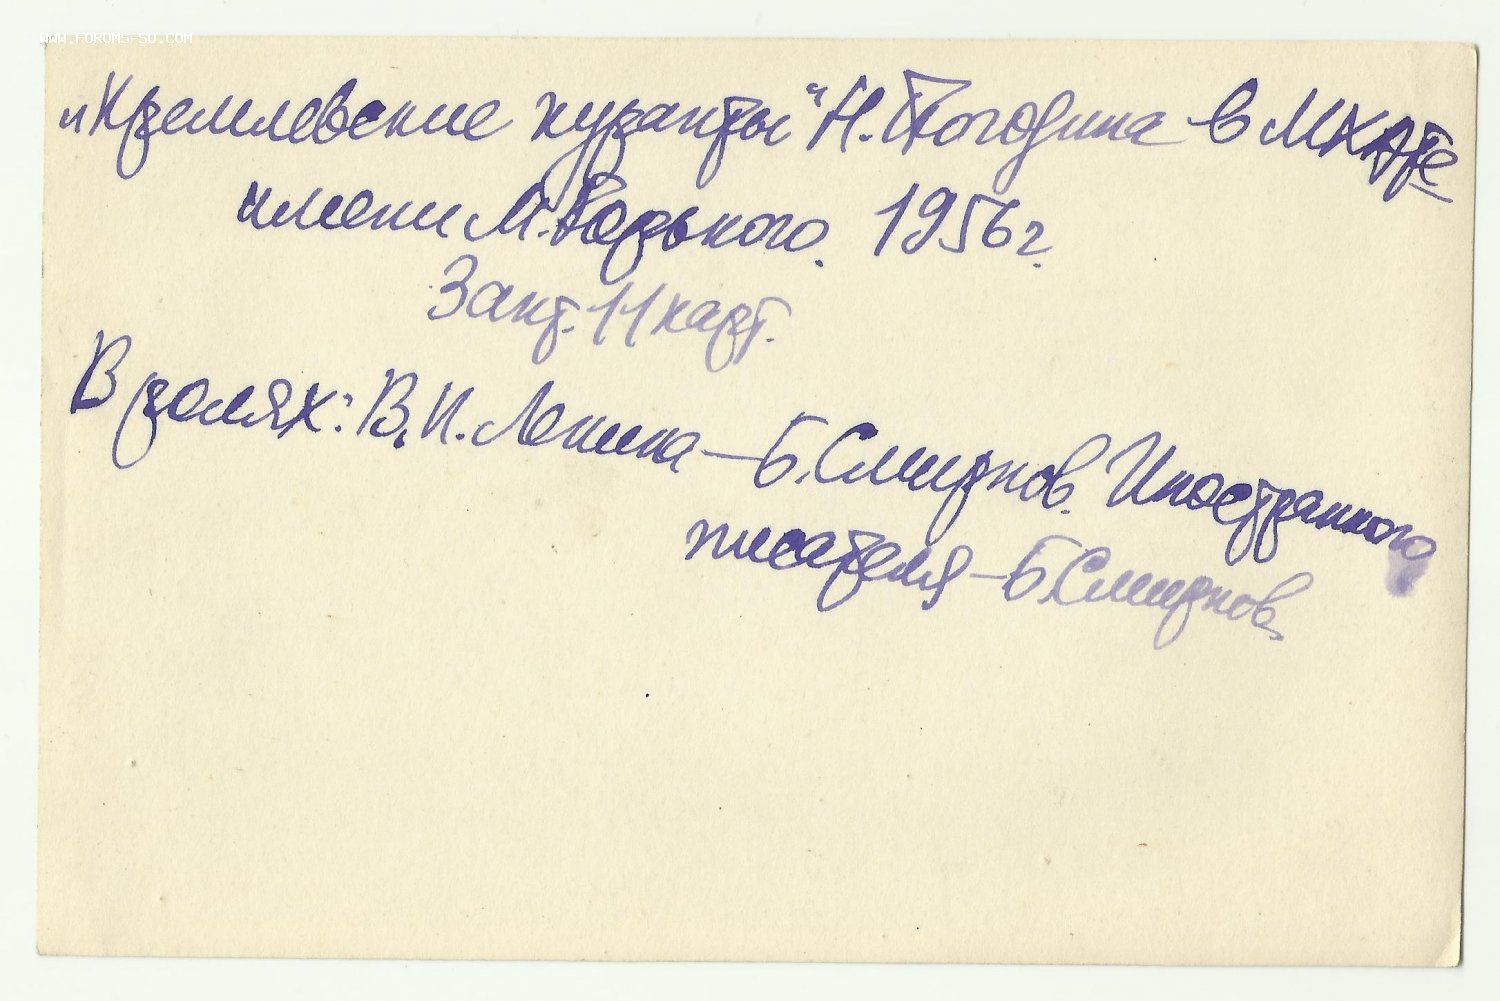 WWW.FORUMS-SU.COM
„Кремлевские куранты" Н. Погодина в МХАТе
имени М. Горького. 1956 г.
3 акт. 11 карт.
В ролях: В. И. Ленина – Б. Смирнов. Иностранного
писателя – Б. Смирнов.